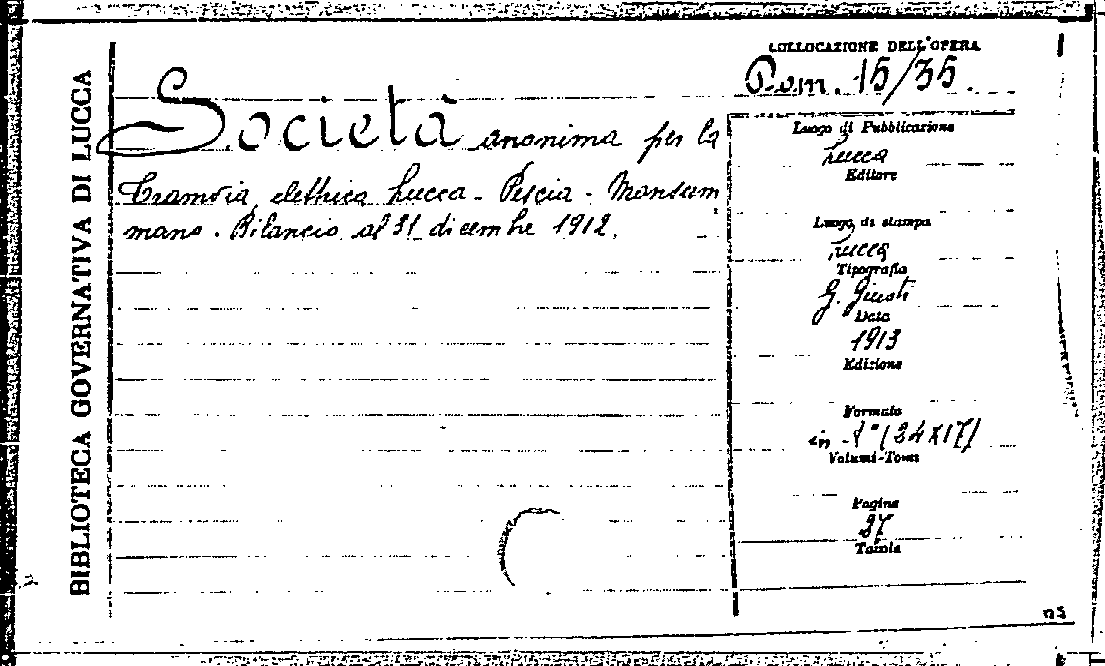 BIBLIOTECA GOVERNATIVA DI LUCCA
COLLOCAZIONE DELL'OPERA
Pom. 15/35.
Società anonima per la
Tramvia elettrica Lucca - Pescia - Monsum
mano. Bilancio al 31 dicembre 1912.
Luogo di Pubblicazione
Lucca
Editore
Luogo di stampa
Lucca
Tipografia
G. Giusti
Data
1913
Edizione
Formato
in - (24X17)
Volumi-Tomi
Pagine
Tavole